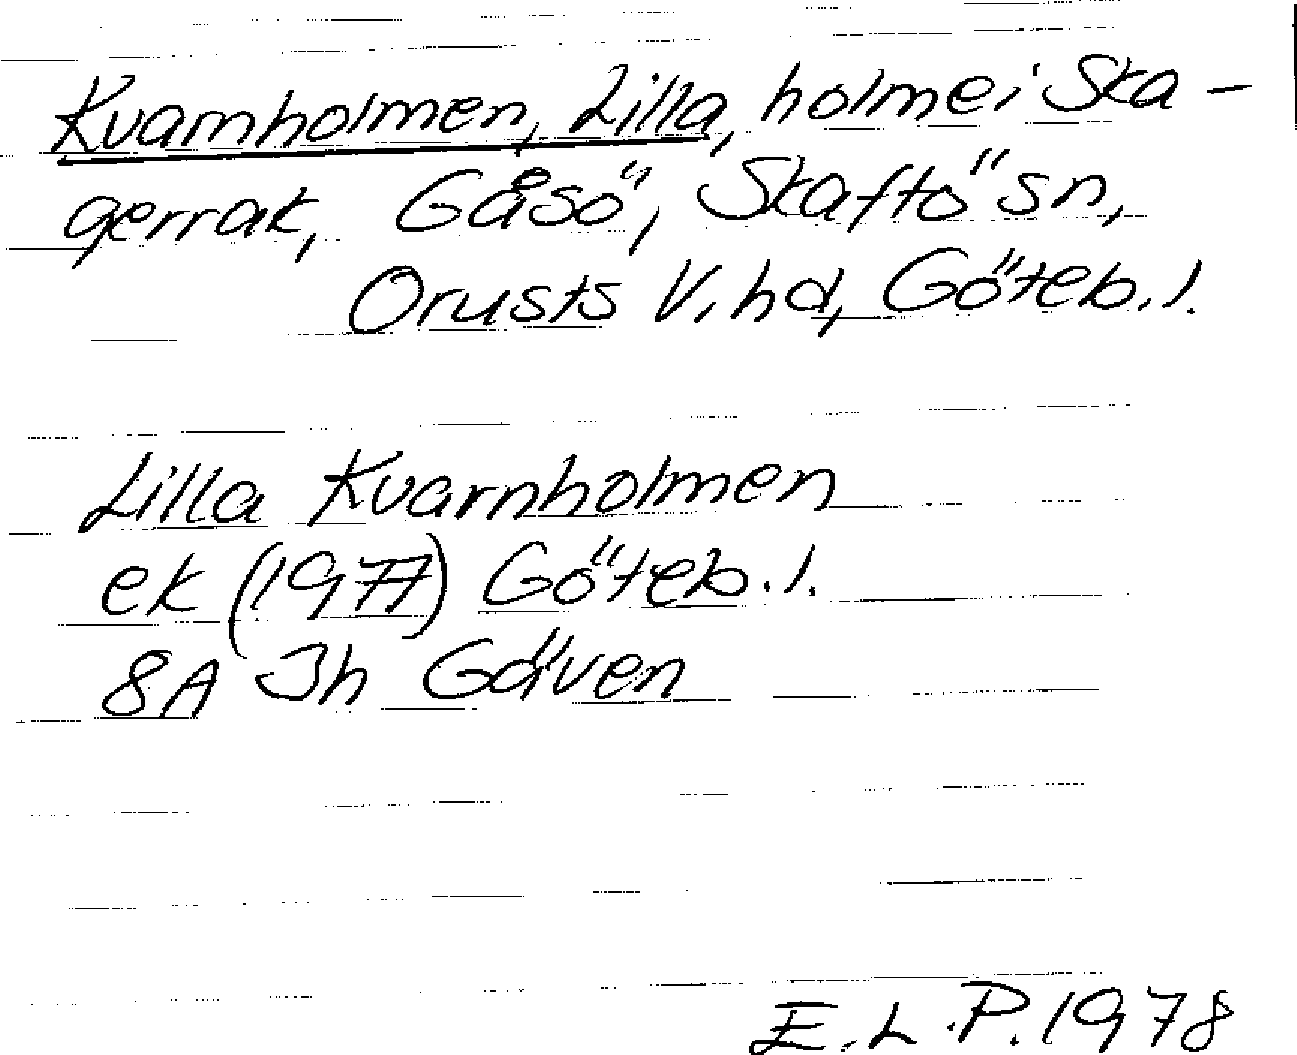 Kvarnholmen, Lilla, holme i Ska-
gerrak, Gåsö, Skaftö sn,
Orusts V. hd, Göteb. l.
Lilla Kvarnholmen
ek (1977) Göteb. l.
8A Jh Gäven
E.L.P. 1978